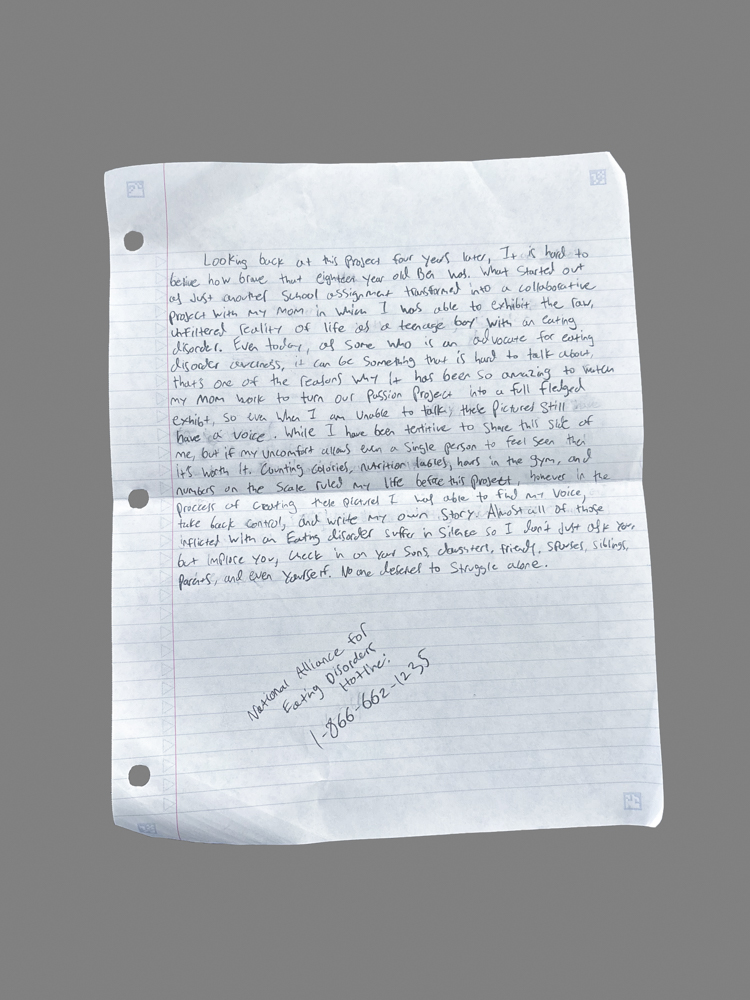 Looking back at this project four years later, It is hard to
belive how brave that eighteen year old Ben was. What started out
as just another school assignment transformed into a collaborative
project with my mom in which I was able to exhibit the raw,
unfiltered reality of life as a teenage boy with an eating
disorder. Even today, as some who is an advocate for eating
disorder awareness, it can be something that is hard to talk about,
thats one of the reasons why it has been so amazing to watch
my mom work to turn our Passion Project into a full fledged
exhibit, so even when I am unable to talk, these pictures still
have a voice. While I have been tentitive to share this side of
me, but if my uncomfort allows even a single person to feel seen then
it's worth it. Counting calories, nutrition lables, hours in the gym, and
numbers on the scale ruled my life before this project, however in the
process of creating these pictures I was able to find my voice,
take back control, and write my own story. Almost all of those
inflicted with an Eating disorder suffer in silence so I don't just ask you,
but implore you, check in on your sons, daughters, friends, spouses, siblings,
parents, and even yourself. No one deserves to struggle alone.
National Alliance for
Eating Disorders
Hotline:
1-866-662-1235